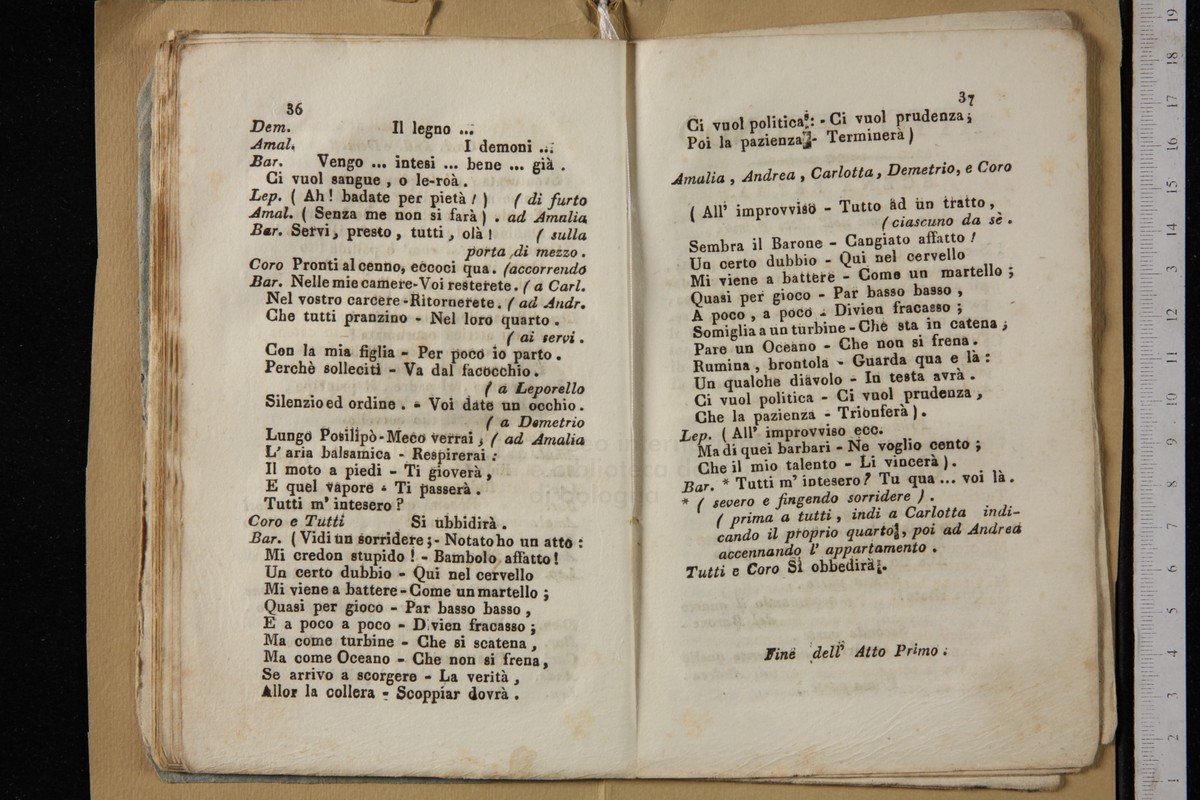 36
Dem. Il legno ...
Amal. I demoni ...
Bar. Vengo ... intesi ... bene ... già .
Ci vuol sangue , o le-roà .
Lep. ( Ah ! badate per pietà ! ) ( di furto
Amal. ( Senza me non si farà ) . ad Amalia
Bar. Servi, presto , tutti , olà ! ( sulla
porta di mezzo .
Coro Pronti al cenno, eccoci qua. (accorrendo
Bar. Nelle mie camere-Voi resterete. ( a Carl.
Nel vostro carcere-Ritornerete. ( ad Andr.
Che tutti pranzino - Nel loro quarto .
( ai servi .
Con la mia figlia - Per poco io parto .
Perchè solleciti - Va dal facocchio .
( a Leporello
Silenzio ed ordine . - Voi date un occhio .
( a Demetrio
Lungo Posilipò-Meco verrai , ( ad Amalia
L' aria balsamica - Respirerai :
Il moto a piedi - Ti gioverà ,
E quel vapore - Ti passerà .
Tutti m' intesero ?
Coro e Tutti Si ubbidirà .
Bar. ( Vidi un sorridere ;- Notato ho un atto :
Mi credon stupido ! - Bambolo affatto !
Un certo dubbio - Qui nel cervello
Mi viene a battere - Come un martello ;
Quasi per gioco - Par basso basso ,
E a poco a poco - Divien fracasso ;
Ma come turbine - Che si scatena ,
Ma come Oceano - Che non si frena ,
Se arrivo a scorgere - La verità ,
Allor la collera - Scoppiar dovrà .
37
Ci vuol politica : - Ci vuol prudenza ;
Poi la pazienza - Terminerà )
Amalia , Andrea , Carlotta , Demetrio, e Coro
( All' improvviso - Tutto ad un tratto ,
( ciascuno da sè .
Sembra il Barone - Cangiato affatto !
Un certo dubbio - Qui nel cervello
Mi viene a battere - Come un martello ;
Quasi per gioco - Par basso basso ,
A poco , a poco - Divien fracasso ;
Somiglia a un turbine - Che sta in catena ;
Pare un Oceano - Che non si frena .
Rumina , brontola - Guarda qua e là :
Un qualche diavolo - In testa avrà .
Ci vuol politica - Ci vuol prudenza ,
Che la pazienza - Trionferà ) .
Lep. ( All' improvviso ecc.
Ma di quei barbari - Ne voglio cento ;
Che il mio talento - Li vincerà ) .
Bar. * Tutti m' intesero ? Tu qua ... voi là .
* ( severo e fingendo sorridere ) .
( prima a tutti , indi a Carlotta indi-
cando il proprio quarto , poi ad Andrea
accennando l' appartamento .
Tutti e Coro Si obbedirà .
Fine dell' Atto Primo .